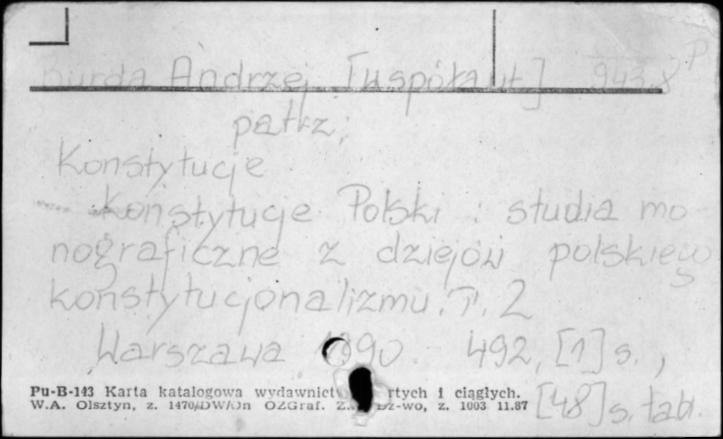 Burda Andrzej [współaut] 943.8 P
patrz:
Konstytucje
Konstytucje Polski : studia mo-
nograficzne z dziejów polskiego
konstytucjonalizmu. T. 2
Warszawa 1990. - 492, [1] s.,
[48] s. tabl.
Pu-B-143 Karta katalogowa wydawnictw rtych i ciągłych.
W.A. Olsztyn, z. 1470/DW/Jn OZGraf. z-wo, z. 1003 11.87